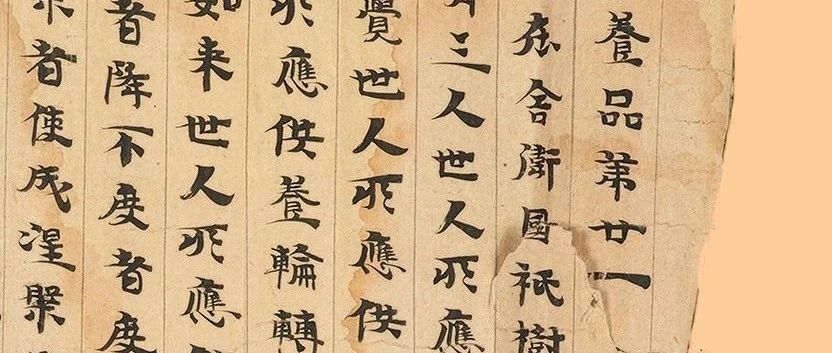 養品第廿一
在舍衛國祇樹
三人世人所應
覺世人所應供
所應供養輪轉
如来世人所應
者降不度者度
者使成涅槃